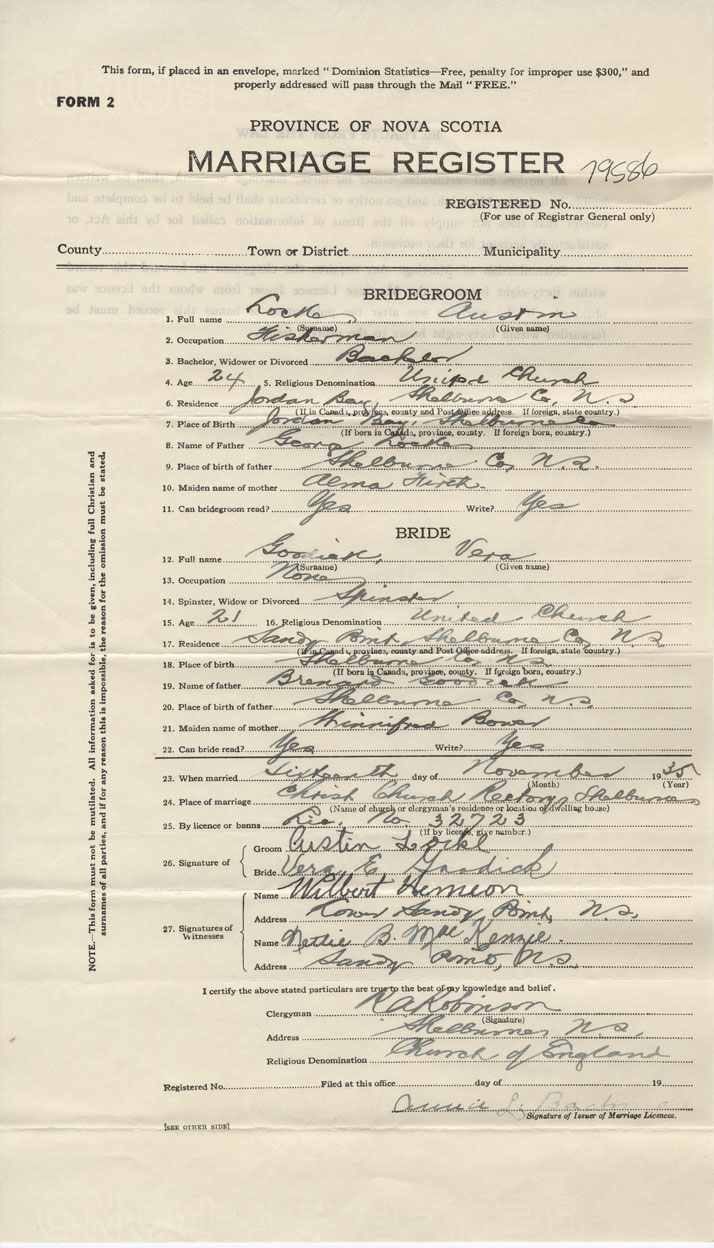 This form, if placed in an envelope, marked "Dominion Statistics—Free, penalty for improper use $300," and
properly addressed will pass through the Mail "FREE."
FORM 2
PROVINCE OF NOVA SCOTIA
MARRIAGE REGISTER 79586
REGISTERED No.
(For use of Registrar General only)
County Town or District Municipality
BRIDEGROOM
1. Full name Locke, Austin
(Surname) (Given name)
2. Occupation Fisherman
3. Bachelor, Widower or Divorced Bachelor
4. Age 24 5. Religious Denomination United Church
6. Residence Jordan Bay, Shelburne Co, N. S
(If in Canada, province, county and Post Office address. If foreign, state country.)
7. Place of Birth Jordan Bay, Shelburne Co
(If born in Canada, province, county. If foreign born, country.)
8. Name of Father George Locke
9. Place of birth of father Shelburne Co, N.S.
10. Maiden name of mother Alma Firth
11. Can bridegroom read? Yes Write? Yes
BRIDE
12. Full name Goodick, Vera
(Surname) (Given name)
13. Occupation None
14. Spinster, Widow or Divorced Spinster
15. Age 21 16. Religious Denomination United Church
17. Residence Sandy Point, Shelburne Co, N S
(If in Canada, province, county and Post Office address. If foreign, state country.)
18. Place of birth Shelburne Co, N S
(If born in Canada, province, county. If foreign born, country.)
19. Name of father Goodick
20. Place of birth of father Shelburne Co, N.S.
21. Maiden name of mother Winnifred Bower
22. Can bride read? Yes Write? Yes
23. When married Sixteenth day of November 1935
(Month) (Year)
24. Place of marriage Christ Church Rectory, Shelburne
(Name of church or clergyman's residence or location of dwelling house)
25. By licence or banns Lic. No. 32723
(If by licence, give number.)
26. Signature of
Groom Austin Locke
Bride Vera E Goodick
27. Signatures of Witnesses
Name Wilbert Hemeon
Address Lower Sandy Point, N.S,
Name Nettie B. MacKenzie.
Address Sandy Point, N.S
I certify the above stated particulars are true to the best of my knowledge and belief.
Clergyman R A Robinson
(Signature)
Address Shelburne, N.S,
Religious Denomination Church of England
Registered No. Filed at this office day of 19
Annie L.
Signature of Issuer of Marriage Licences.
[SEE OTHER SIDE]
NOTE.—This form must not be mutilated. All information asked for is to be given, including full Christian and
surnames of all parties, and if for any reason this is impossible, the reason for the omission must be stated.